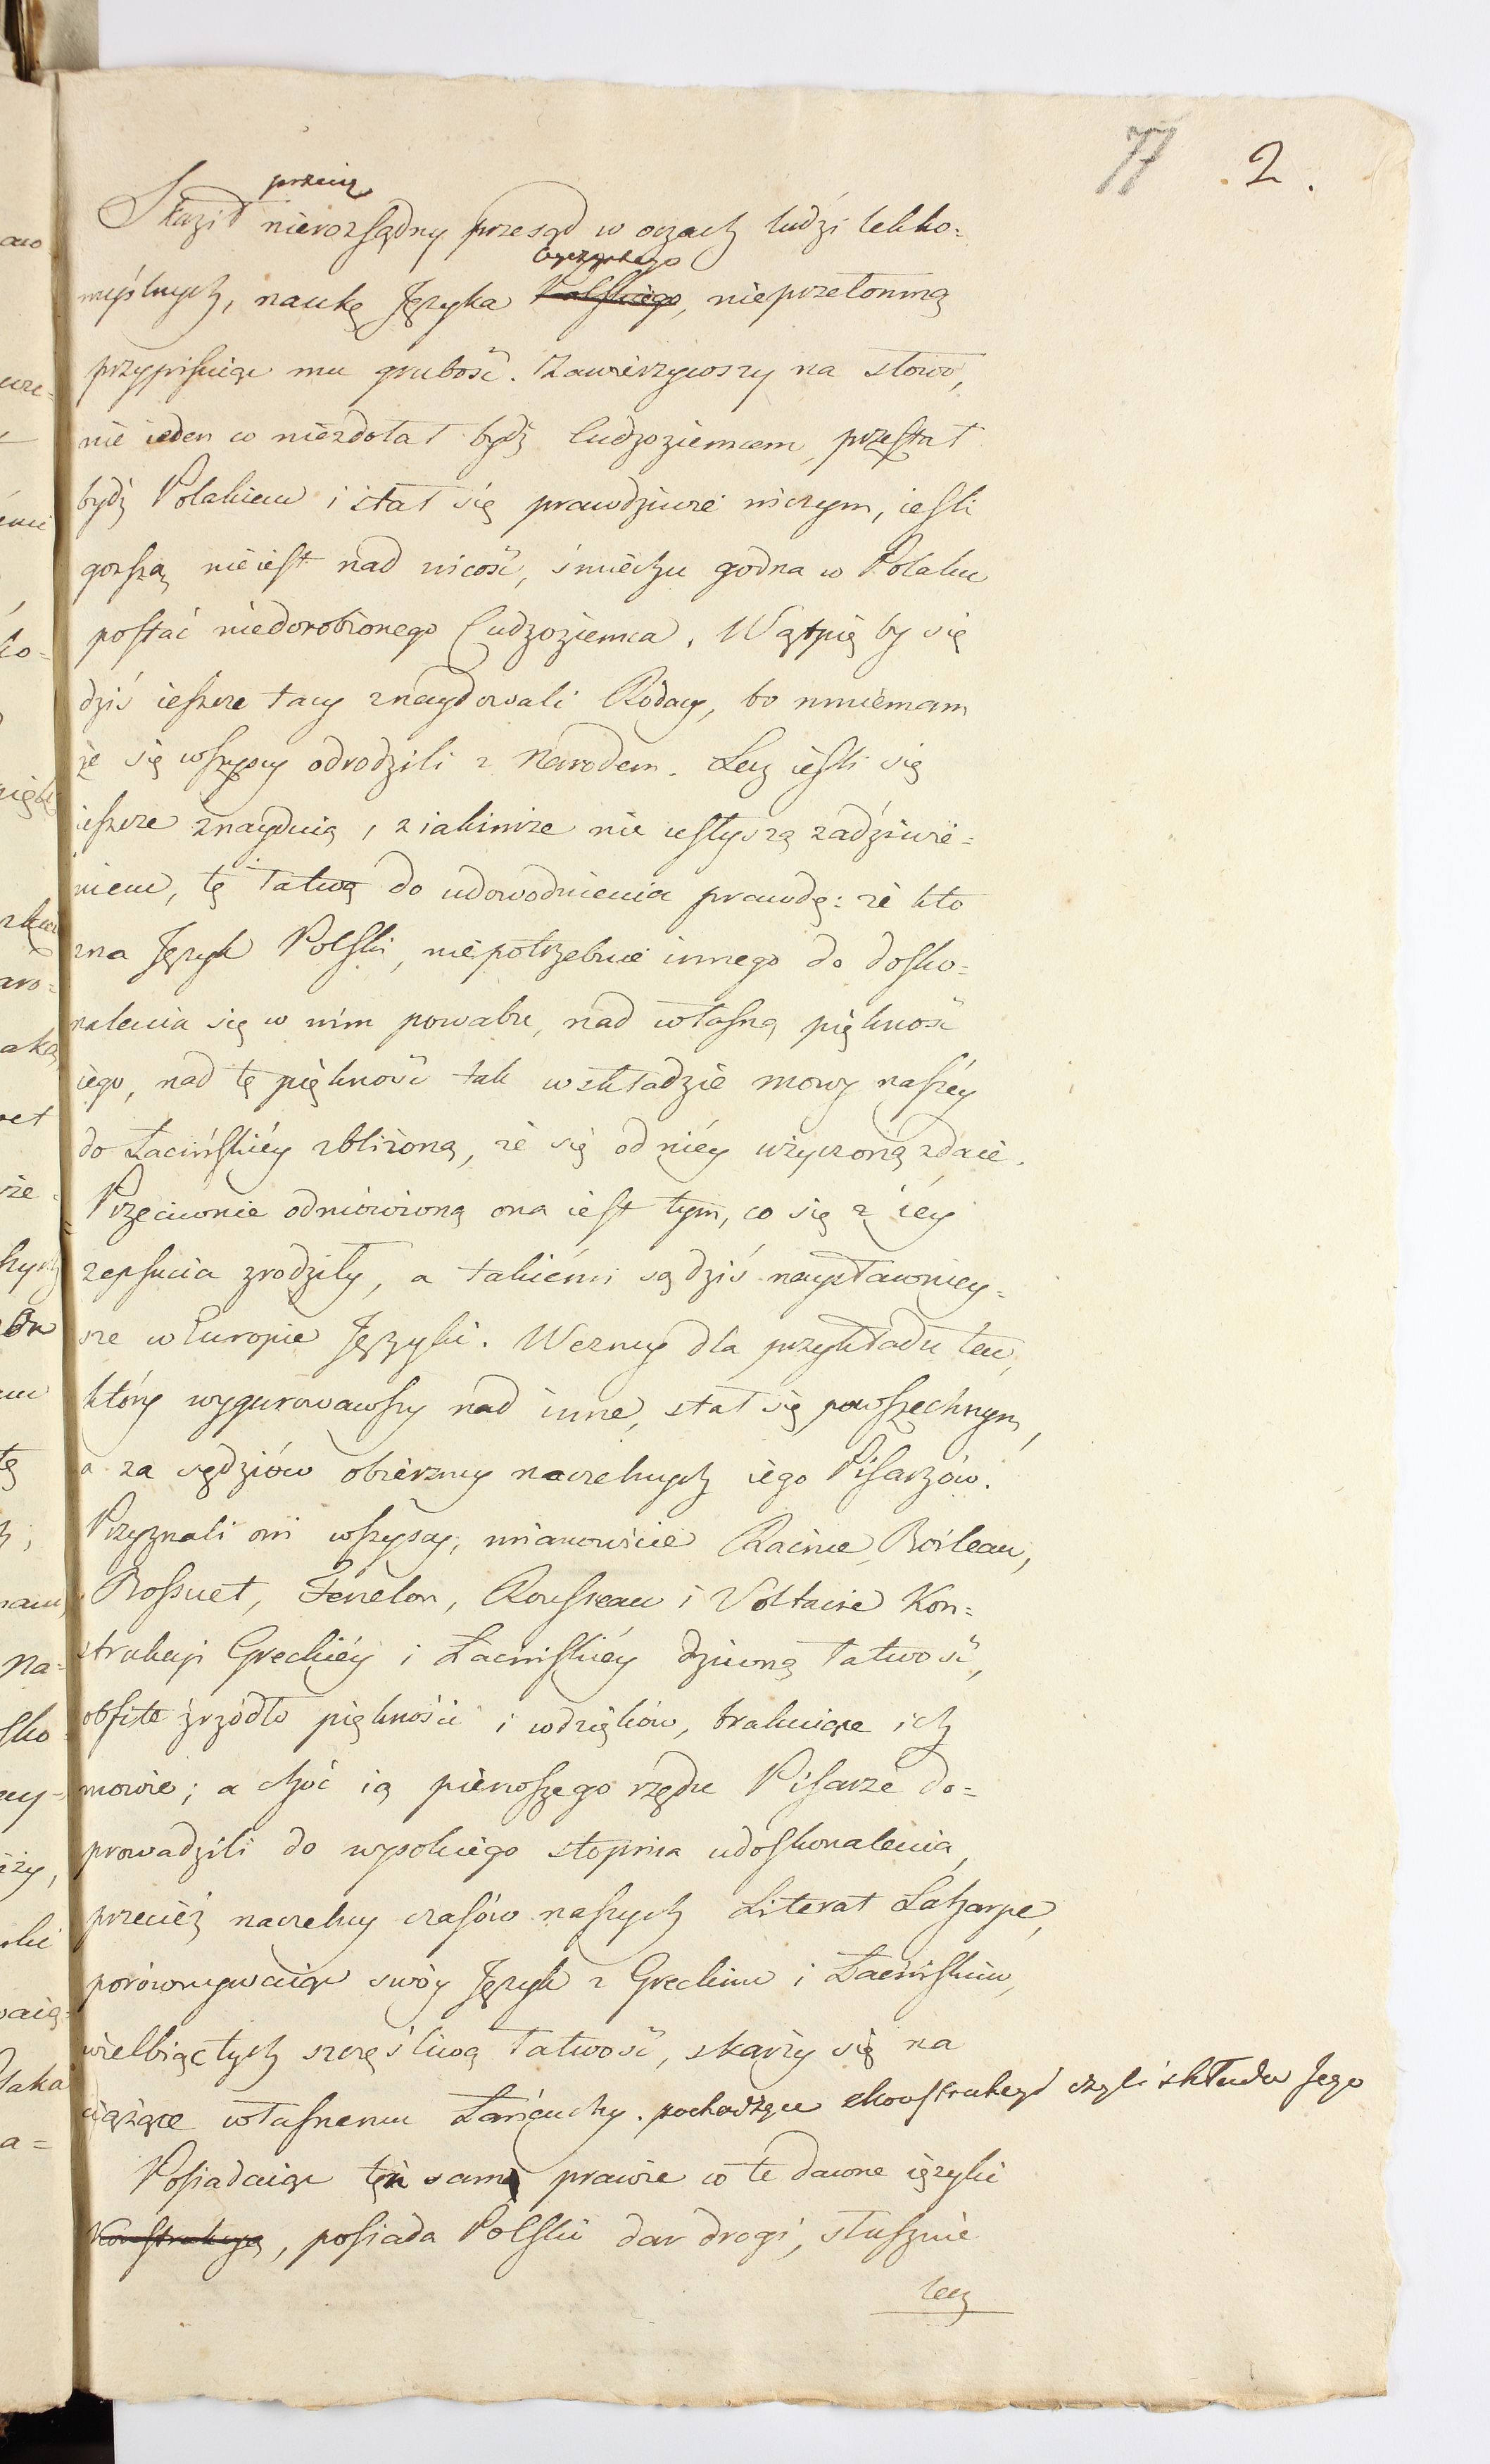 77 2.
przecięż
Skaził nierozsądny przesąd w oczach ludzi lekko=
Oyczystego
myślnych, naukę Języka Polskiego, nieprzełomną
przypisuiąc mu grubość. Zawierzywszy na słowo,
nie ieden co niezdołał bydź Cudzoziemcem, przestał
bydź Polakiem i stał się prawdziwie niczym, ieśli
gorszą nieiest nad nicość, śmiechu godna w Polaku
postać niedorobionego Cudzoziemca. Wątpię by się
dziś ieszcze tacy znaydowali Rodacy, bo mniemam
że się wszyscy odrodzili z Narodem. Lecz ieśli się
ieszcze znayduią, z iakimże nie usłyszą zadziwie=
niem, tę łatwą do udowodnienia prawdę: że kto
zna Język Polski, niepotrzebuie innego do dosko=
nalenia się w nim powabu, nad własną piękność
iego, nad tę piękność tak w składzie mowy naszéy
do Łacińskiéy zbliżoną, że się od niéy użyczoną zdaie.
Przeciwnie odmówioną ona iest tym, co się z iéy
zepsucia zrodziły, a takiémi są dziś naysławniey=
sze w Europie Języki. Weźmy dla przykładu ten,
który wygurowawszy nad inne, stał się powszechnym,
a za sędziów obierzmy naczelnych iego Pisarzów.
Przyznali oni wszyscy, mianowicie Racine, Boileau,
Bossuet, Fenelon, Rousseau i Voltaire Kon=
strukcyi Greckiéy i Łacińskiéy dziwną łatwość,
obfite źrzódło piękności i wdzięków, brakuiące ich
mowie; a choć ią pierwszego rzędu Pisarze do=
prowadzili do wysokiego stopnia udoskonalenia,
przecięż naczelny czasów naszych Literat Laharpe,
porównywaiąc swóy Język z Greckim i Łacińskim,
wielbiąc tych szczęśliwą łatwość, skarży się na
ciążące własnemu Łańcuchy. pochodzące z konstrukcyi czyli składu Jego
Posiadaiąc tęż samą prawie co te dawne ięzyki
Konstrukcyą, posiada Polski dar drogi, słusznie
lecz